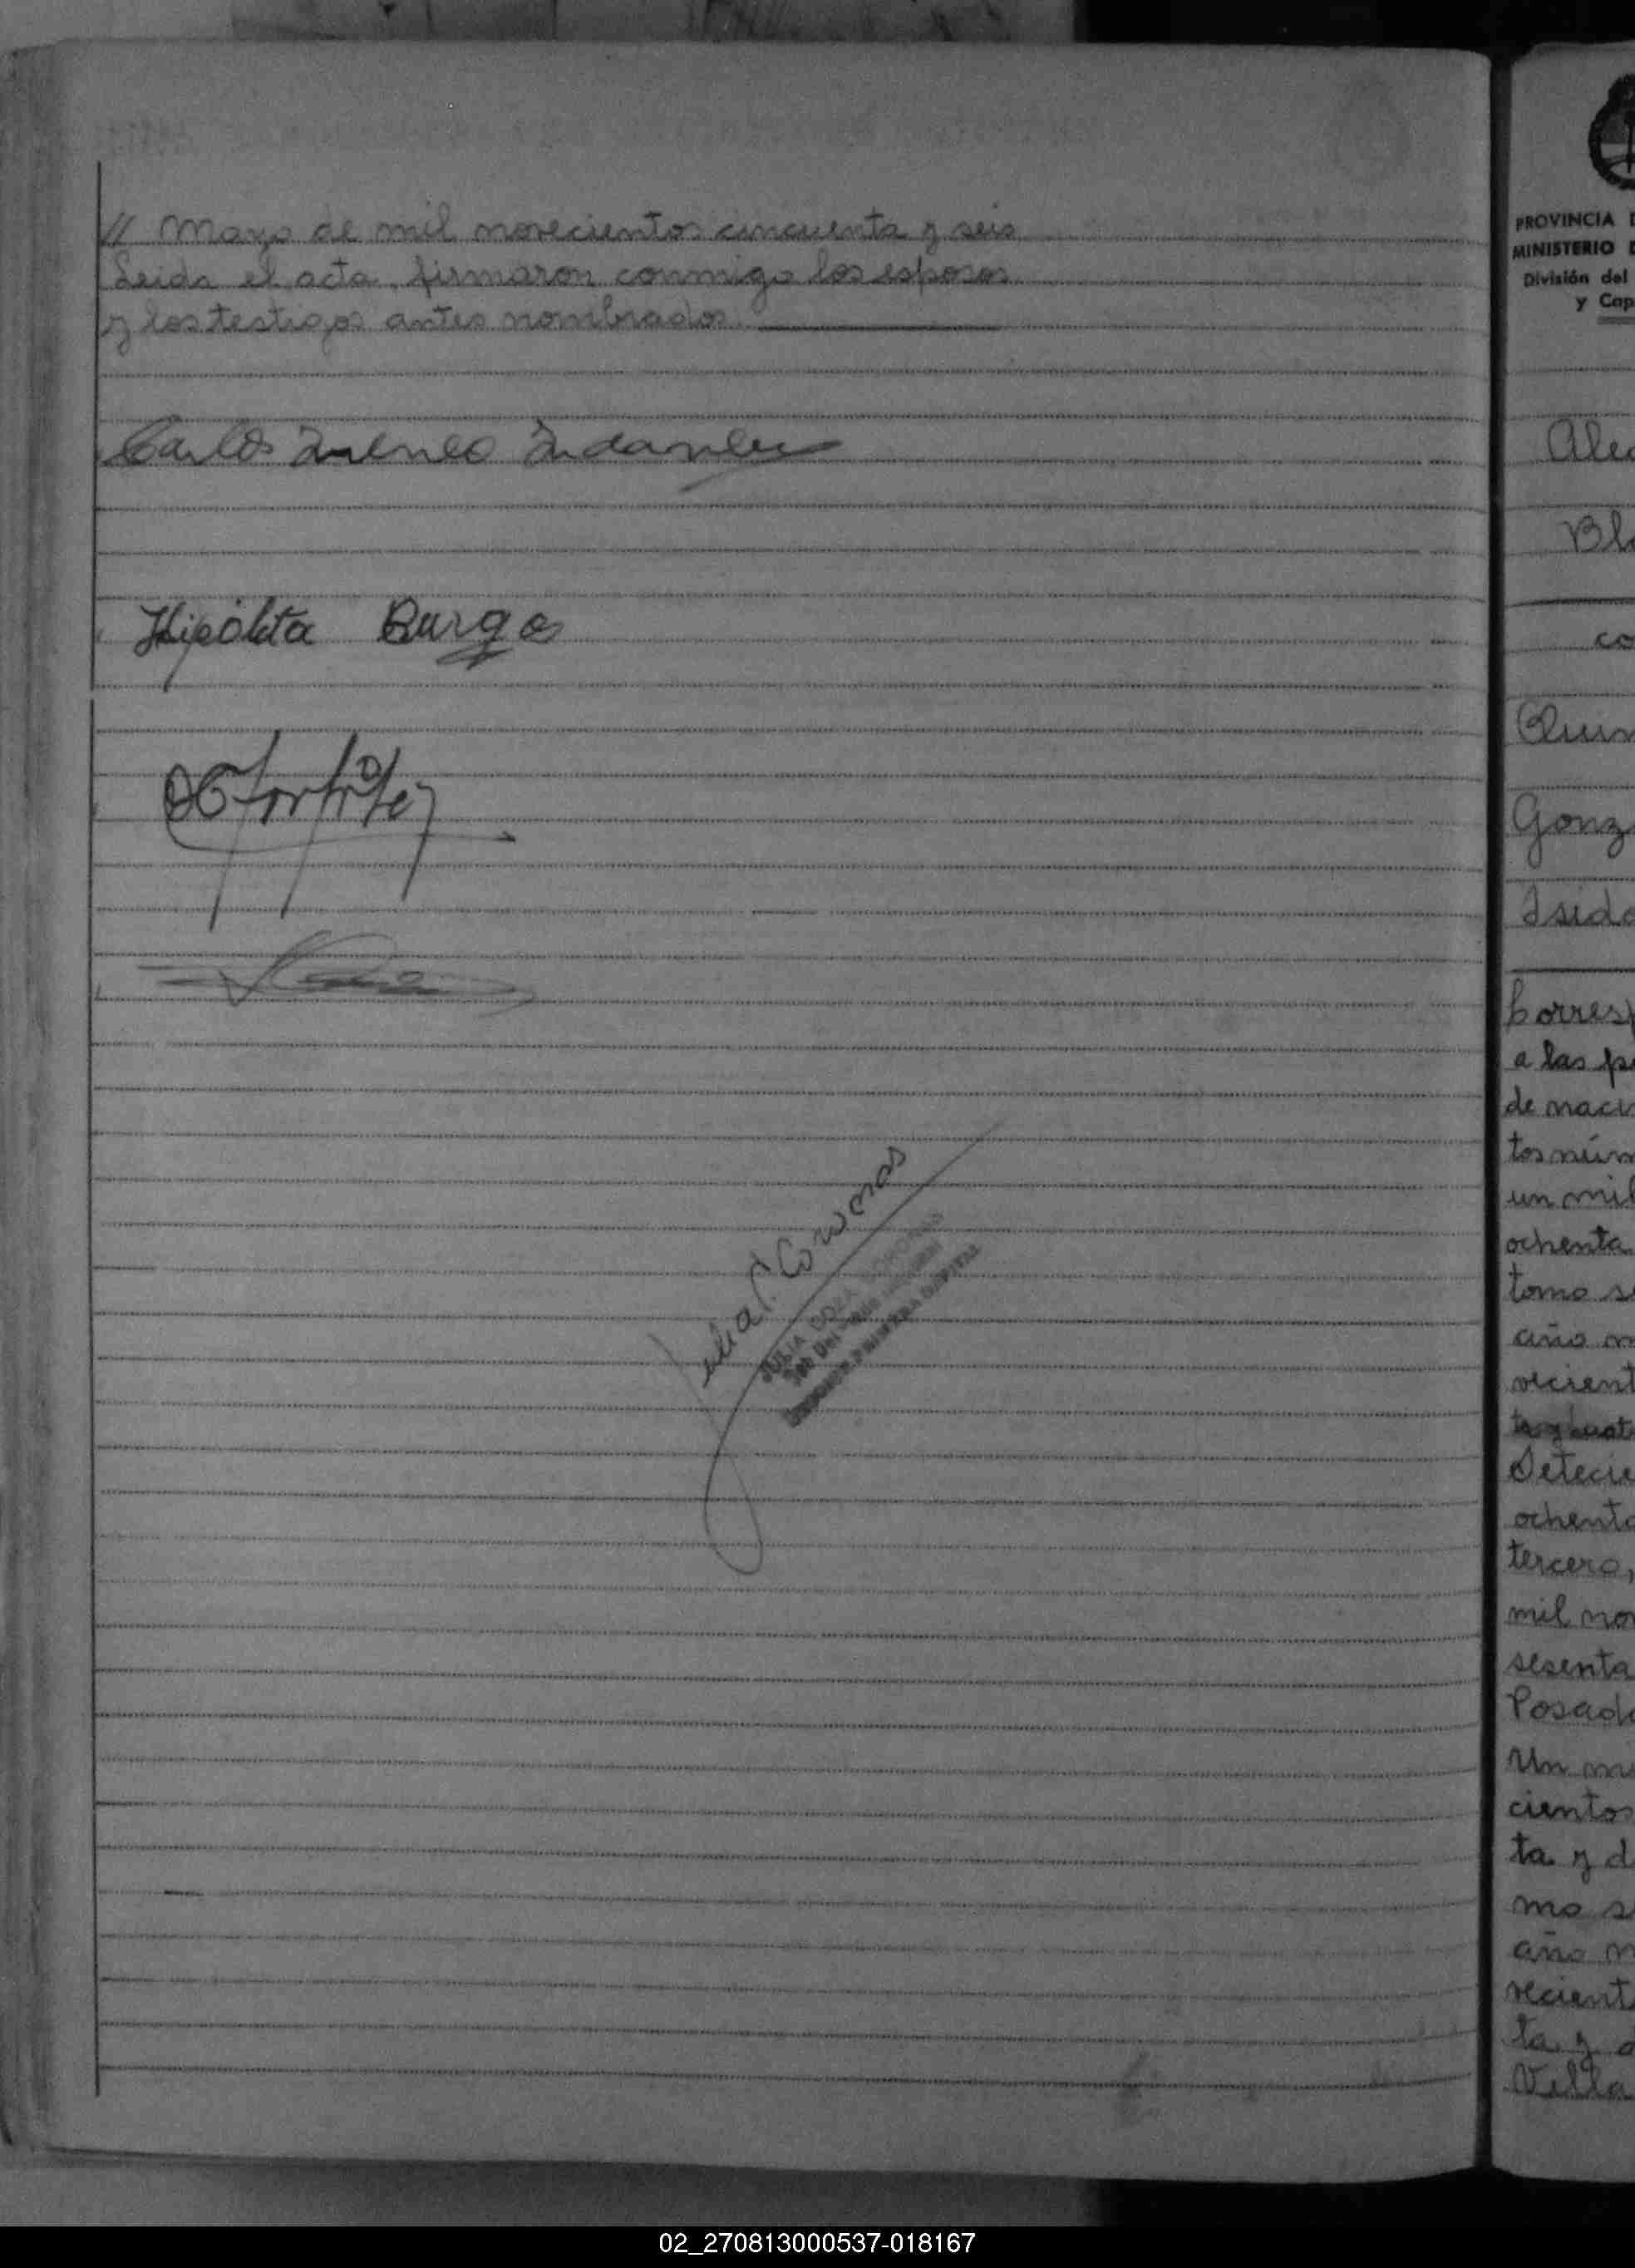 // Mayo de mil novecientos cincuenta y seis
Leida el acta, firmaron conmigo los esposos
y los testigos antes nombrados
Carlos
Hipólita Burgos
Julia C. Coronas
JULIA
PRIMERA CAPITAL
PROVINCIA
MINISTERIO
División del
y Cap
Ale
Bl
co
Quin
Gonz
Isido
Corresp
a las pa
de naci
tos núm
un mil
ochenta
tomo se
año m
vecient
ta y cuat
Setecie
ochenta
tercero,
mil nov
sesenta
Posada
Un mi
cientos
ta y d
mo s
año n
vecient
ta y o
Villa
02_270813000537-018167